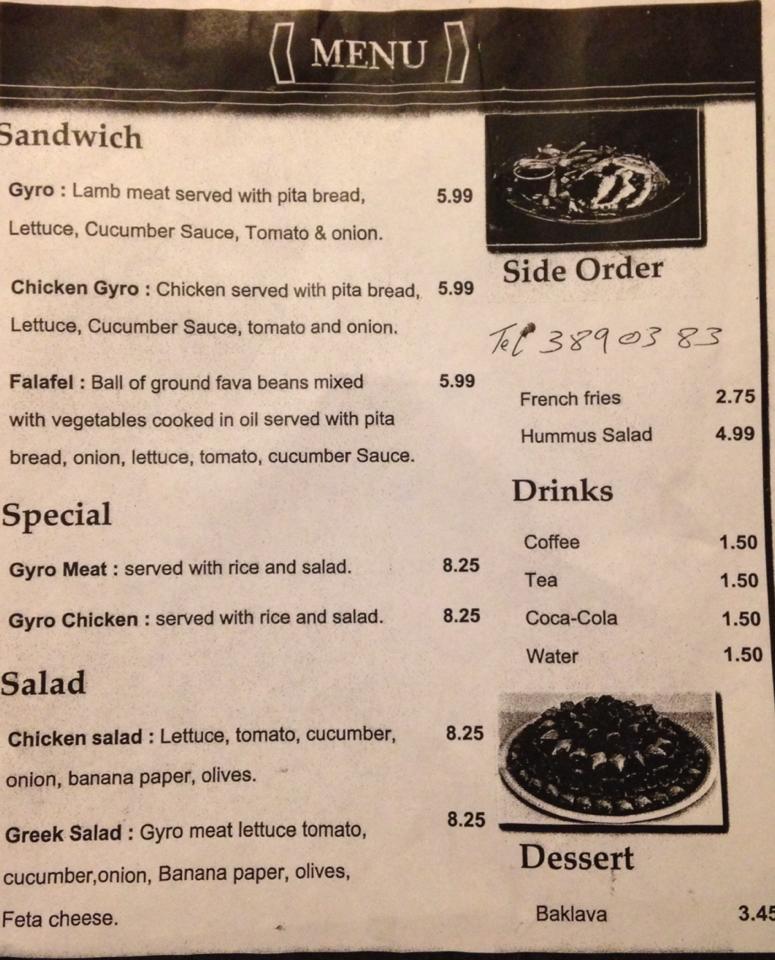 MENU
Sandwich
Gyro : Lamb meat served with pita bread, 5.99
Lettuce, Cucumber Sauce, Tomato & onion.
Chicken Gyro : Chicken served with pita bread, 5.99
Lettuce, Cucumber Sauce, tomato and onion.
Falafel : Ball of ground fava beans mixed 5.99
with vegetables cooked in oil served with pita
bread, onion, lettuce, tomato, cucumber Sauce.
Special
Gyro Meat : served with rice and salad. 8.25
Gyro Chicken : served with rice and salad. 8.25
Salad
Chicken salad : Lettuce, tomato, cucumber, 8.25
onion, banana paper, olives.
Greek Salad : Gyro meat lettuce tomato, 8.25
cucumber,onion, Banana paper, olives,
Feta cheese.
Side Order
Tel 389 03 83
French fries 2.75
Hummus Salad 4.99
Drinks
Coffee 1.50
Tea 1.50
Coca-Cola 1.50
Water 1.50
Dessert
Baklava 3.45